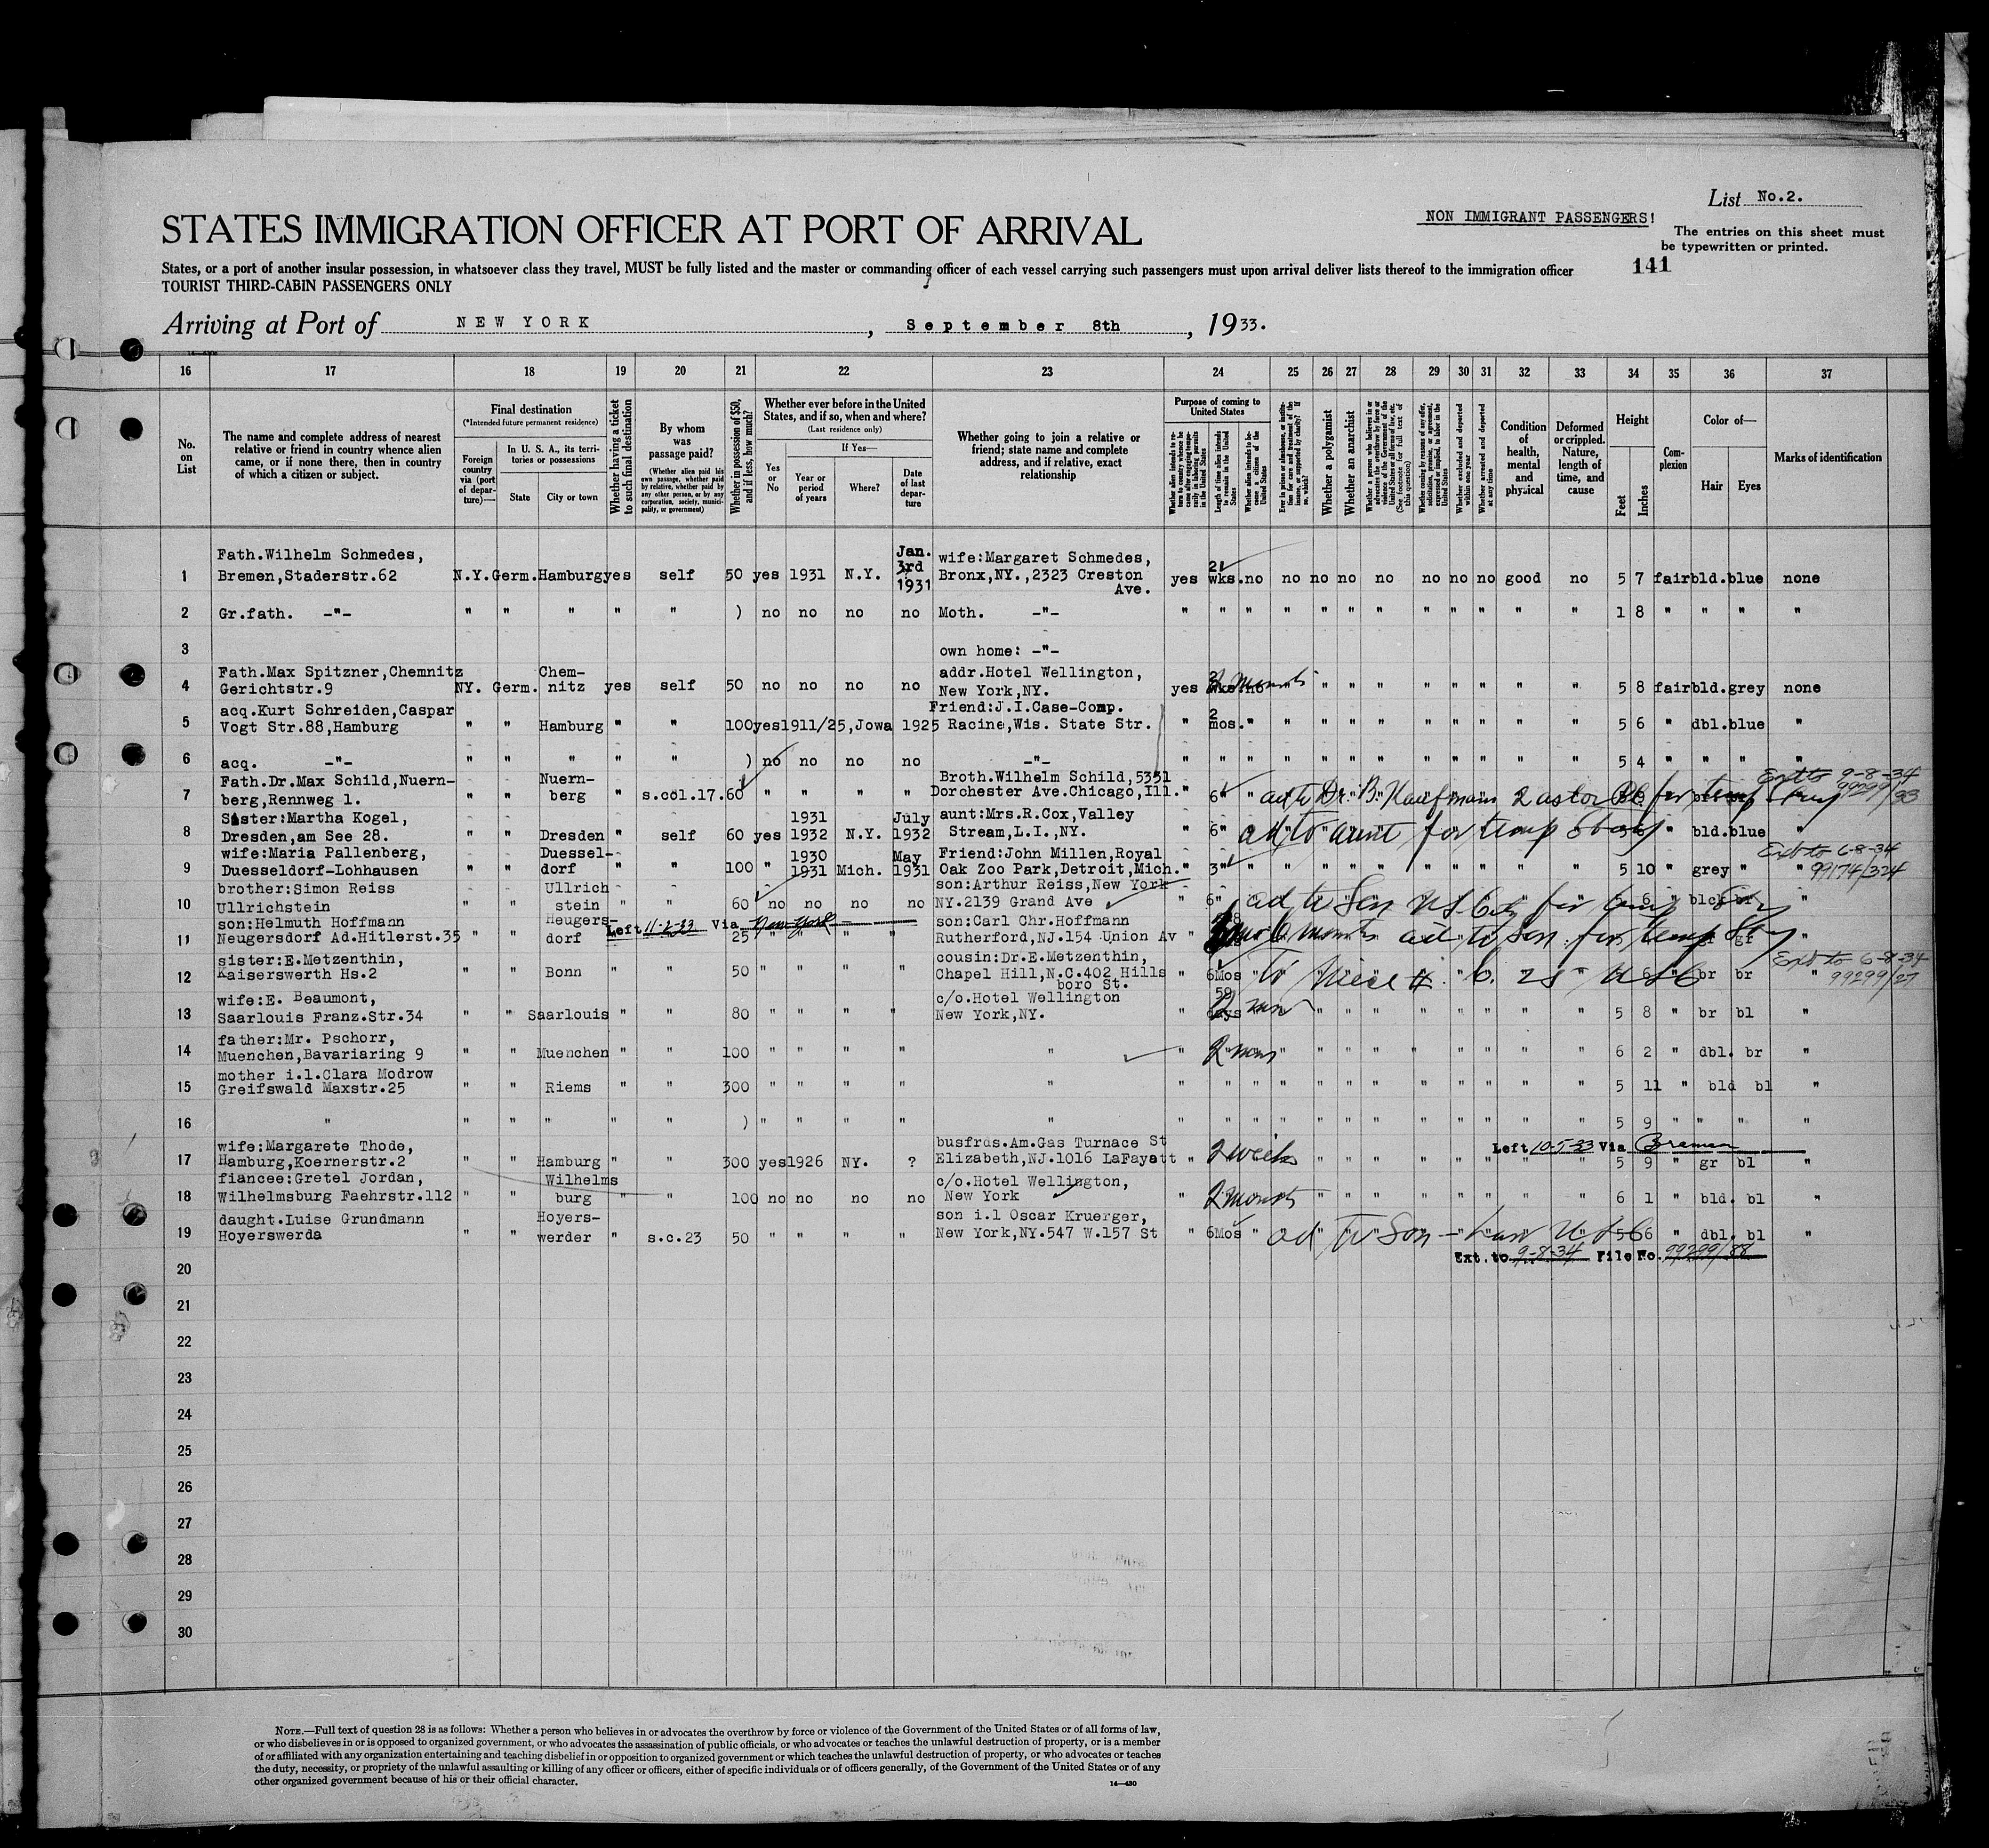 List No.2.
NON IMMIGRANT PASSENGERS!
STATES IMMIGRATION OFFICER AT PORT OF ARRIVAL
The entries on this sheet must
be typewritten or printed.
States, or a port of another insular possession, in whatsoever class they travel, MUST be fully listed and the master or commanding officer of each vessel carrying such passengers must upon arrival deliver lists thereof to the immigration officer
141
TOURIST THIRD-CABIN PASSENGERS ONLY
Arriving at Port of NEW YORK, September 8th, 1933.
16 17 18 19 20 21 22 23 24 25 26 27 28 29 30 31 32 33 34 35 36 37
No. on List
The name and complete address of nearest
relative or friend in country whence alien
came, or if none there, then in country
of which a citizen or subject.
Final destination
(*Intended future permanent residence)
Foreign country via (port of departure)—
In U. S. A., its territories or possessions
State
City or town
Whether having a ticket to such final destination
By whom was passage paid?
(Whether alien paid his own passage, whether paid by relative, whether paid by any other person, or by any corporation, society, municipality, or government)
Whether in possession of $50, and if less, how much?
Whether ever before in the United States, and if so, when and where?
(Last residence only)
Yes or No
If Yes—
Year or period of years
Where?
Date of last departure
Whether going to join a relative or
friend; state name and complete
address, and if relative, exact
relationship
Purpose of coming to United States
Whether alien intends to return to country whence he came after engaging temporarily in laboring pursuits in the United States
Length of time alien intends to remain in the United States
Whether alien intends to become a citizen of the United States
Ever in prison or almshouse, or institution for care and treatment of the insane, or supported by charity? If so, which?
Whether a polygamist
Whether an anarchist
Whether coming by reasons of any offer, solicitation, promise, or agreement, expressed or implied, to labor in the United States
Whether excluded and deported within one year
Whether arrested and deported at any time
Condition of health, mental and physical
Deformed or crippled. Nature, length of time, and cause
Height
Feet
Inches
Complexion
Color of—
Hair
Eyes
Marks of identification
1 Fath.Wilhelm Schmedes, Bremen,Staderstr.62 N.Y. Germ. Hamburg yes self 50 yes 1931 N.Y. Jan. 3rd 1931 wife:Margaret Schmedes, Bronx,NY.,2323 Creston Ave. yes wks. no no no no no no no no good no 5 7 fair bld. blue none
2 Gr.fath. -"- " " " " " ) no no no no Moth. -"- " " " " " " " " " " " " 1 8 " " " "
3 own home: -"-
4 Fath.Max Spitzner,Chemnitz Gerichtstr.9 NY. Germ. Chemnitz yes self 50 no no no no addr.Hotel Wellington, New York,NY. yes 2 months " " " " " " " " " 5 8 fair bld. grey none
5 acq.Kurt Schreiden,Caspar Vogt Str.88,Hamburg " " Hamburg " " 100 yes 1911/25,Jowa 1925 Friend:J.I.Case-Comp. Racine,Wis. State Str. " 2 mos. " " " " " " " " " " 5 6 " dbl. blue "
6 acq. -"- " " " " " ) no no no no -"- " " " " " " " " " " " " 5 4 " " " "
7 Fath.Dr.Max Schild,Nuernberg,Rennweg 1. " " Nuernberg " s.col.17. 60 " " " " Broth.Wilhelm Schild,5331 Dorchester Ave.Chicago,Ill. " 6" Dr. B. Kaufmann 2 astor Pl. for temp stay Ext to 9-8-34 99299/93
8 Sister:Martha Kogel, Dresden,am See 28. " " Dresden " self 60 yes 1931 1932 N.Y. July 1932 aunt:Mrs.R.Cox,Valley Stream,L.I.,NY. " 6" ad to aunt for temp stay " bld. blue "
9 wife:Maria Pallenberg, Duesseldorf-Lohhausen " " Duesseldorf " " 100 " 1930 1931 Mich. May 1931 Friend:John Millen,Royal Oak Zoo Park,Detroit,Mich. " 3" " " " " " " " " " " 5 10 " grey " " Ext to 6-8-34 99174/324
10 brother:Simon Reiss Ullrichstein " " Ullrichstein " " 60 no no no no son:Arthur Reiss,New York NY.2139 Grand Ave " 6" ad to Son
11 son:Helmuth Hoffmann Neugersdorf Ad.Hitlerst.35 " " Neugersdorf Left 11-2-33 Via New York 25 " " " " son:Carl Chr.Hoffmann Rutherford,NJ.154 Union Av " 6 months ad to Son for temp stay "
12 sister:E.Metzenthin, Kaiserswerth Hs.2 " " Bonn " " 50 " " " " cousin:Dr.E.Metzenthin, Chapel Hill,N.C.402 Hillsboro St. " 6Mos To Niece br br " Ext to 6-8-34 99299/27
13 wife:E. Beaumont, Saarlouis Franz.Str.34 " " Saarlouis " " 80 " " " " c/o.Hotel Wellington New York,NY. " 59 days 2 mos " " " " " " " " " 5 8 " br bl "
14 father:Mr. Pschorr, Muenchen,Bavariaring 9 " " Muenchen " " 100 " " " " " " 2 mos " " " " " " " " " 6 2 " dbl. br "
15 mother i.l.Clara Modrow Greifswald Maxstr.25 " " Riems " " 300 " " " " " " " " " " " " " " " " " 5 11 " bld bl "
16 " " " " " " ) " " " " " " " " " " " " " " " " " 5 9 " " " "
17 wife:Margarete Thode, Hamburg,Koernerstr.2 " " Hamburg " " 300 yes 1926 NY. ? busfrds.Am.Gas Turnace St Elizabeth,NJ.1016 LaFayatt " 2 weeks " " " " " " " Left 10-5-33 Via Bremen 5 9 " gr bl "
18 fiancee:Gretel Jordan, Wilhelmsburg Faehrstr.112 " " Wilhelmsburg " " 100 no no no no c/o.Hotel Wellington, New York " 2 months " " " " " " " " " 6 1 " bld. bl "
19 daught.Luise Grundmann Hoyerswerda " " Hoyerswerder " s.c.23 50 " " " " son i.l Oscar Kruerger, New York,NY.547 W.157 St " 6Mos " ad to Son-Law 5 6 " dbl. bl "
Ext. to 9-8-34 File No. 99299/88
20
21
22
23
24
25
26
27
28
29
30
NOTE.—Full text of question 28 is as follows: Whether a person who believes in or advocates the overthrow by force or violence of the Government of the United States or of all forms of law,
or who disbelieves in or is opposed to organized government, or who advocates the assassination of public officials, or who advocates or teaches the unlawful destruction of property, or is a member
of or affiliated with any organization entertaining and teaching disbelief in or opposition to organized government or which teaches the unlawful destruction of property, or who advocates or teaches
the duty, necessity, or propriety of the unlawful assaulting or killing of any officer or officers, either of specific individuals or of officers generally, of the Government of the United States or of any
other organized government because of his or their official character.
14—430